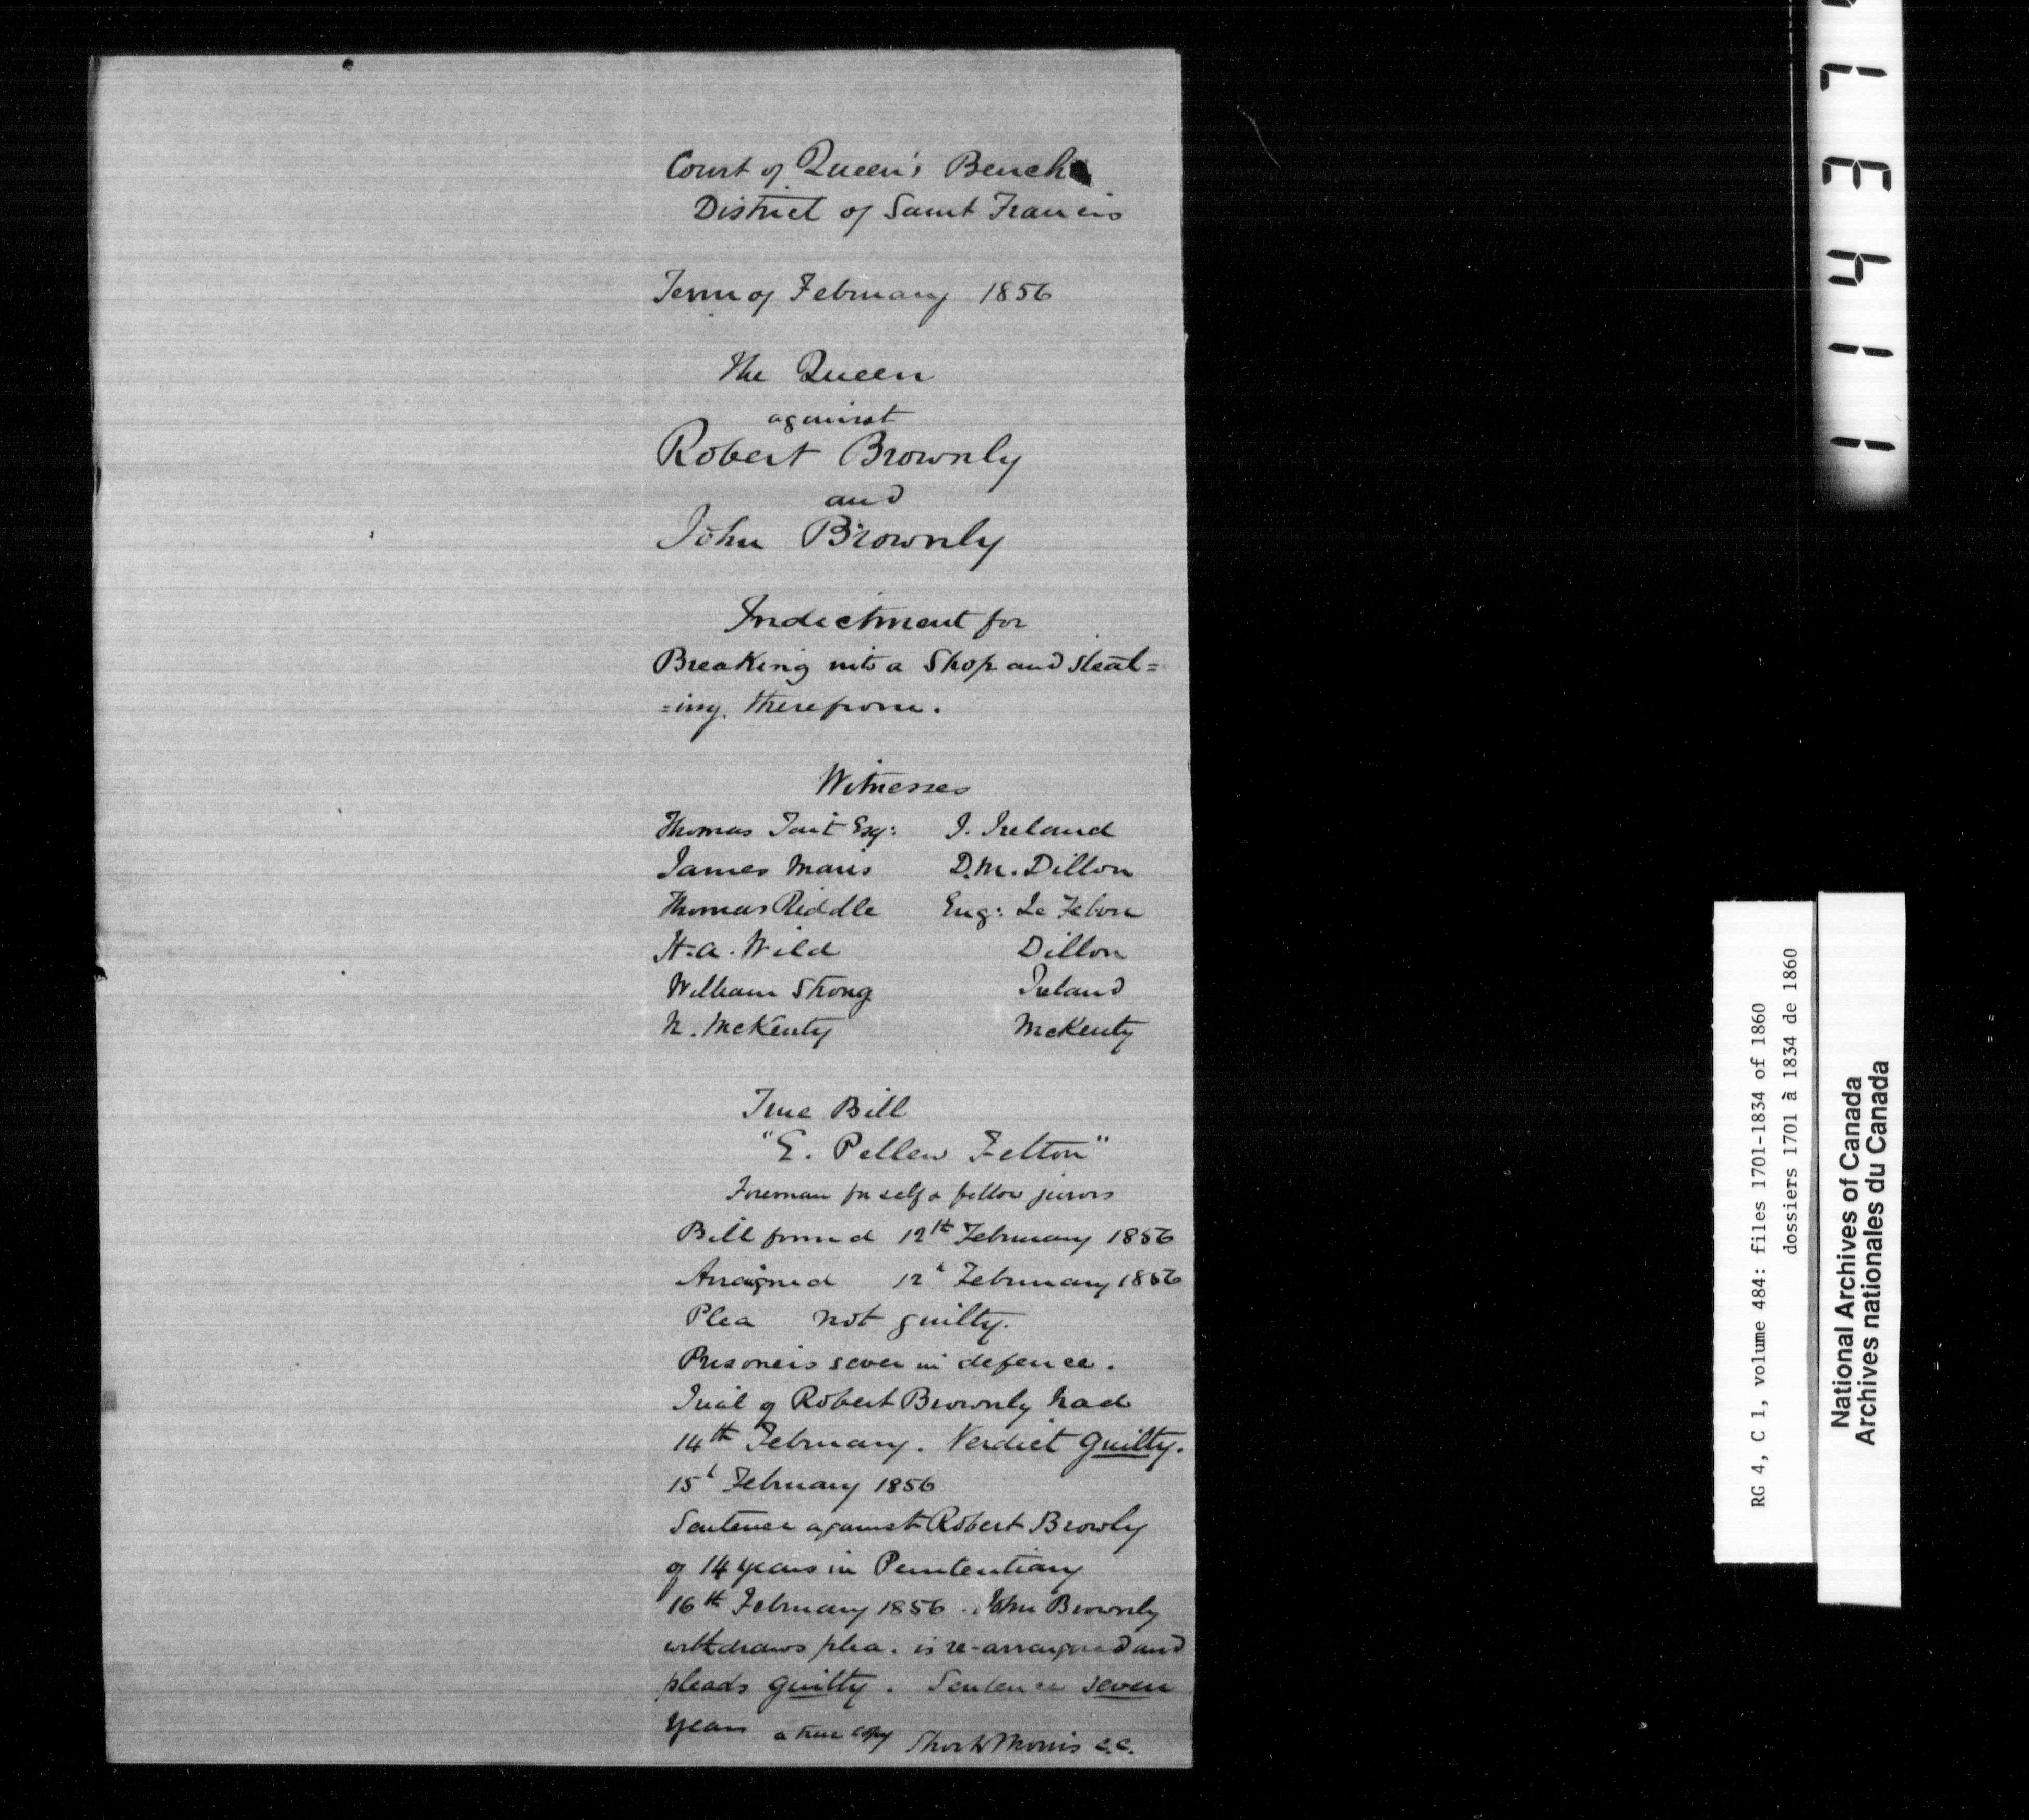 Court of Queen's Bench
District of Saint Francis
Term of February 1856
The Queen
against
Robert Brownly
and
John Brownly
Indictment for
Breaking into a Shop and steal=
=ing therefrom.
Witnesses
Thomas Tait Esq: J. Ireland
James Maris D.M. Dillon
Thomas Riddle Eug: Le Febvre
H.A. Wild Dillon
William Strong Ireland
N. McKenty McKenty
True Bill
"E. Pellew Felton"
Foreman for self & fellow jurors
Bill found 12th February 1856
Arraigned 12h February 1856
Plea not guilty.
Prisoners sever in defence.
Trial of Robert Brownly had
14th February. Verdict Guilty.
15h February 1856
Sentence against Robert Browly
of 14 years in Penitentiary
16th February 1856. John Brownly
withdraws plea. is re-arraigned and
pleads guilty. Sentence seven
years a true copy Short & Morris C.C.
1 1 4 3 7
RG 4, C 1, volume 484: files 1701-1834 of 1860
dossiers 1701 à 1834 de 1860
National Archives of Canada
Archives nationales du Canada